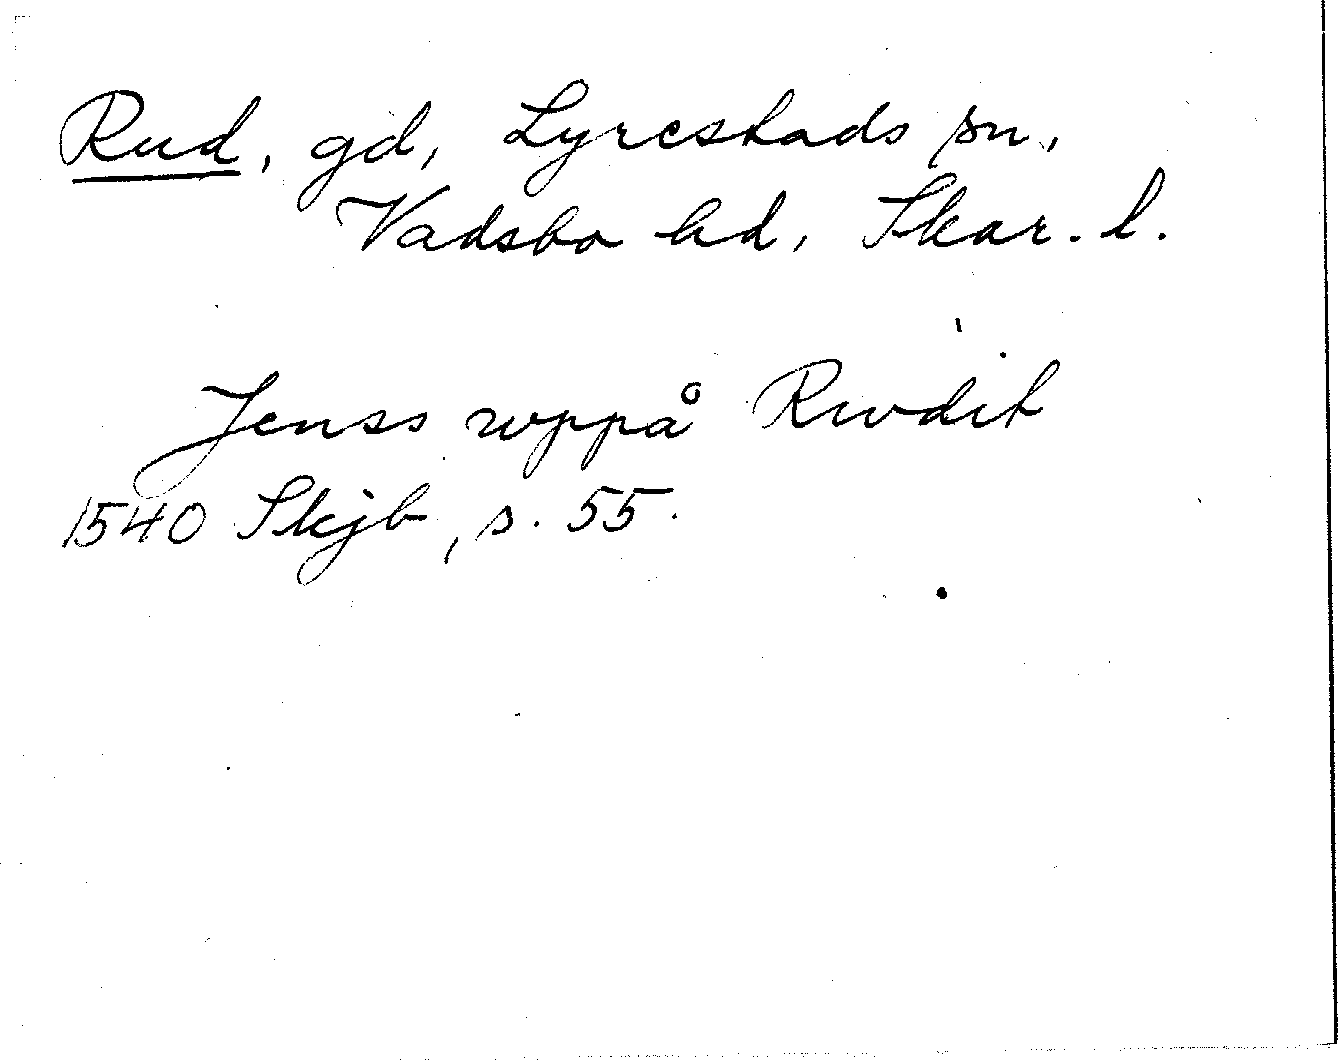 Rud, gd, Lyrestads sn,
Vadsbo hd, Skar. l.
Jenss wppå Rwdit
1540 Skjb, s. 55.